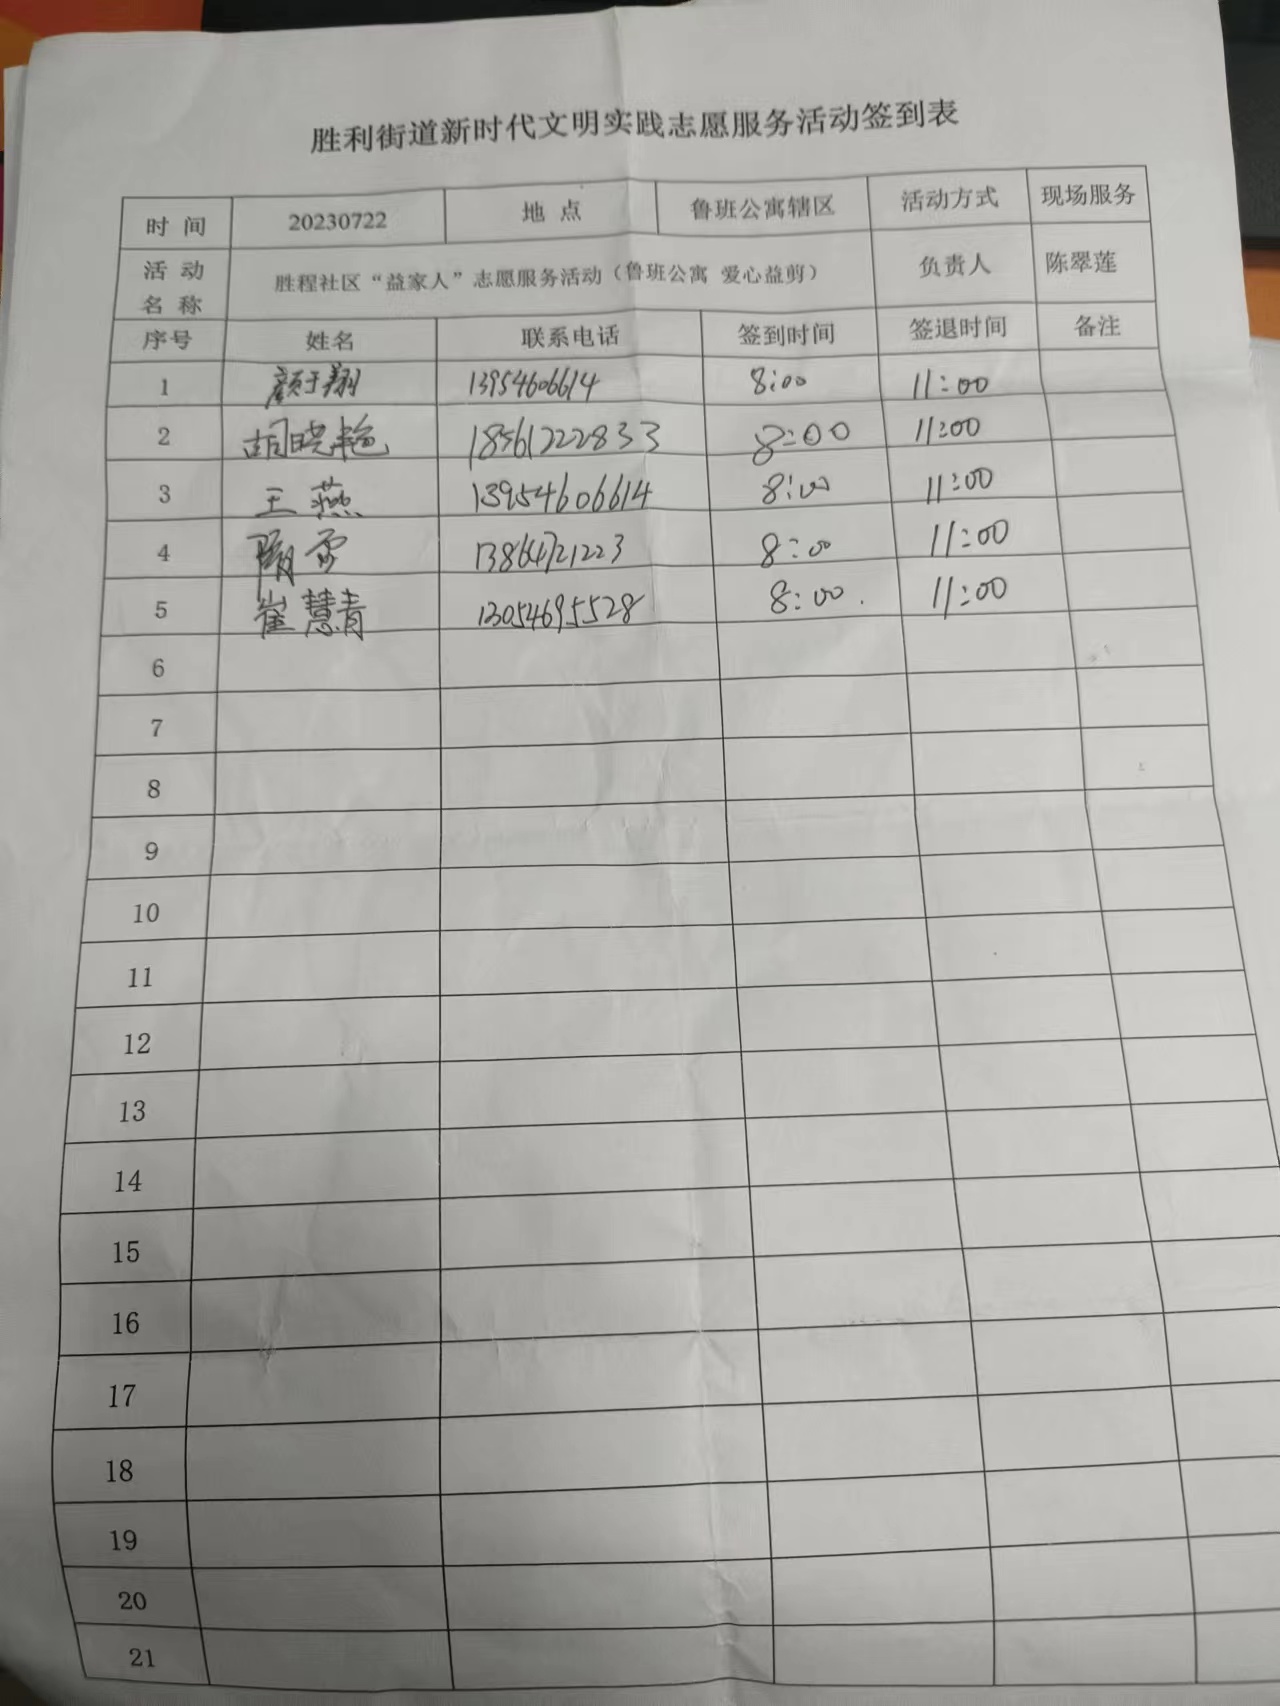 胜利街道新时代文明实践志愿服务活动签到表
时 间 20230722 地 点 鲁班公寓辖区 活动方式 现场服务
活 动 名 称 胜程社区“益家人”志愿服务活动（鲁班公寓 爱心益剪） 负责人 陈翠莲
序号 姓名 联系电话 签到时间 签退时间 备注
1 颜于翔 13954606614 8:00 11:00
2 胡晓艳 18561222833 8:00 11:00
3 王燕 13954606614 8:00 11:00
4 隋雪 13864721223 8:00 11:00
5 崔慧青 13054695528 8:00. 11:00
6
7
8
9
10
11
12
13
14
15
16
17
18
19
20
21